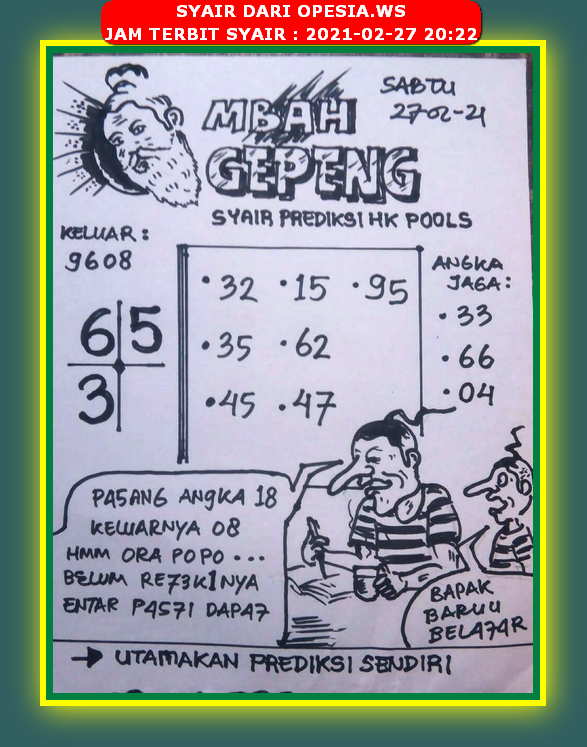 SYAIR DARI OPESIA.WS
JAM TERBIT SYAIR : 2021-02-27 20:22
SABTU
27-02-21
MBAH
GEPENG
SYAIR PREDIKSI HK POOLS
KELUAR :
9608
6 5
3
• 32 • 15 • 95
• 35 • 62
• 45 • 47
ANGKA
JAGA :
• 33
• 66
• 04
PA5ANG ANGKA 18
KELUARNYA 08
HMM ORA POPO ...
BELUM RE73K1NYA
ENTAR P4S71 DAPA7
BAPAK
BARUU
BELA74R
→ UTAMAKAN PREDIKSI SENDIRI